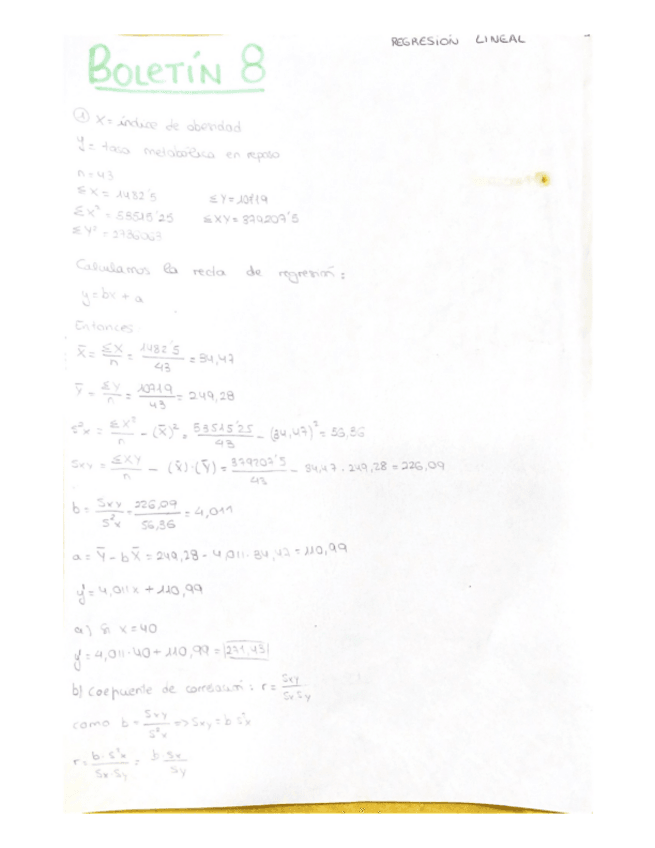 REGRESIÓN LINEAL
BOLETÍN 8
① X = índice de obesidad
Y = tasa metabólica en reposo
n = 43
ΣX = 1482'5 ΣY = 10719
ΣX² = 53515'25 ΣXY = 379207'5
ΣY² = 2786063
Calculamos la recta de regresión:
y = bx + a
Entonces:
X̄ = ΣX/n = 1482'5/43 = 34,47
Ȳ = ΣY/n = 10719/43 = 249,28
s²x = ΣX²/n - (X̄)² = 53515'25/43 - (34,47)² = 56,36
Sxy = ΣXY/n - (X̄)·(Ȳ) = 379207'5/43 - 34,47 · 249,28 = 226,09
b = Sxy/S²x = 226,09/56,36 = 4,011
a = Ȳ - bX̄ = 249,28 - 4,011 · 34,47 = 110,99
y = 4,011x + 110,99
a) Si x = 40
y = 4,011·40 + 110,99 = 271,43
b) Coeficiente de correlación: r = Sxy/SxSy
como b = Sxy/S²x => Sxy = b·s²x
r = b·s²x/Sx·Sy = b·Sx/Sy